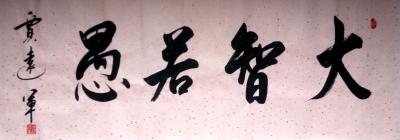 大智若愚
賈達軍